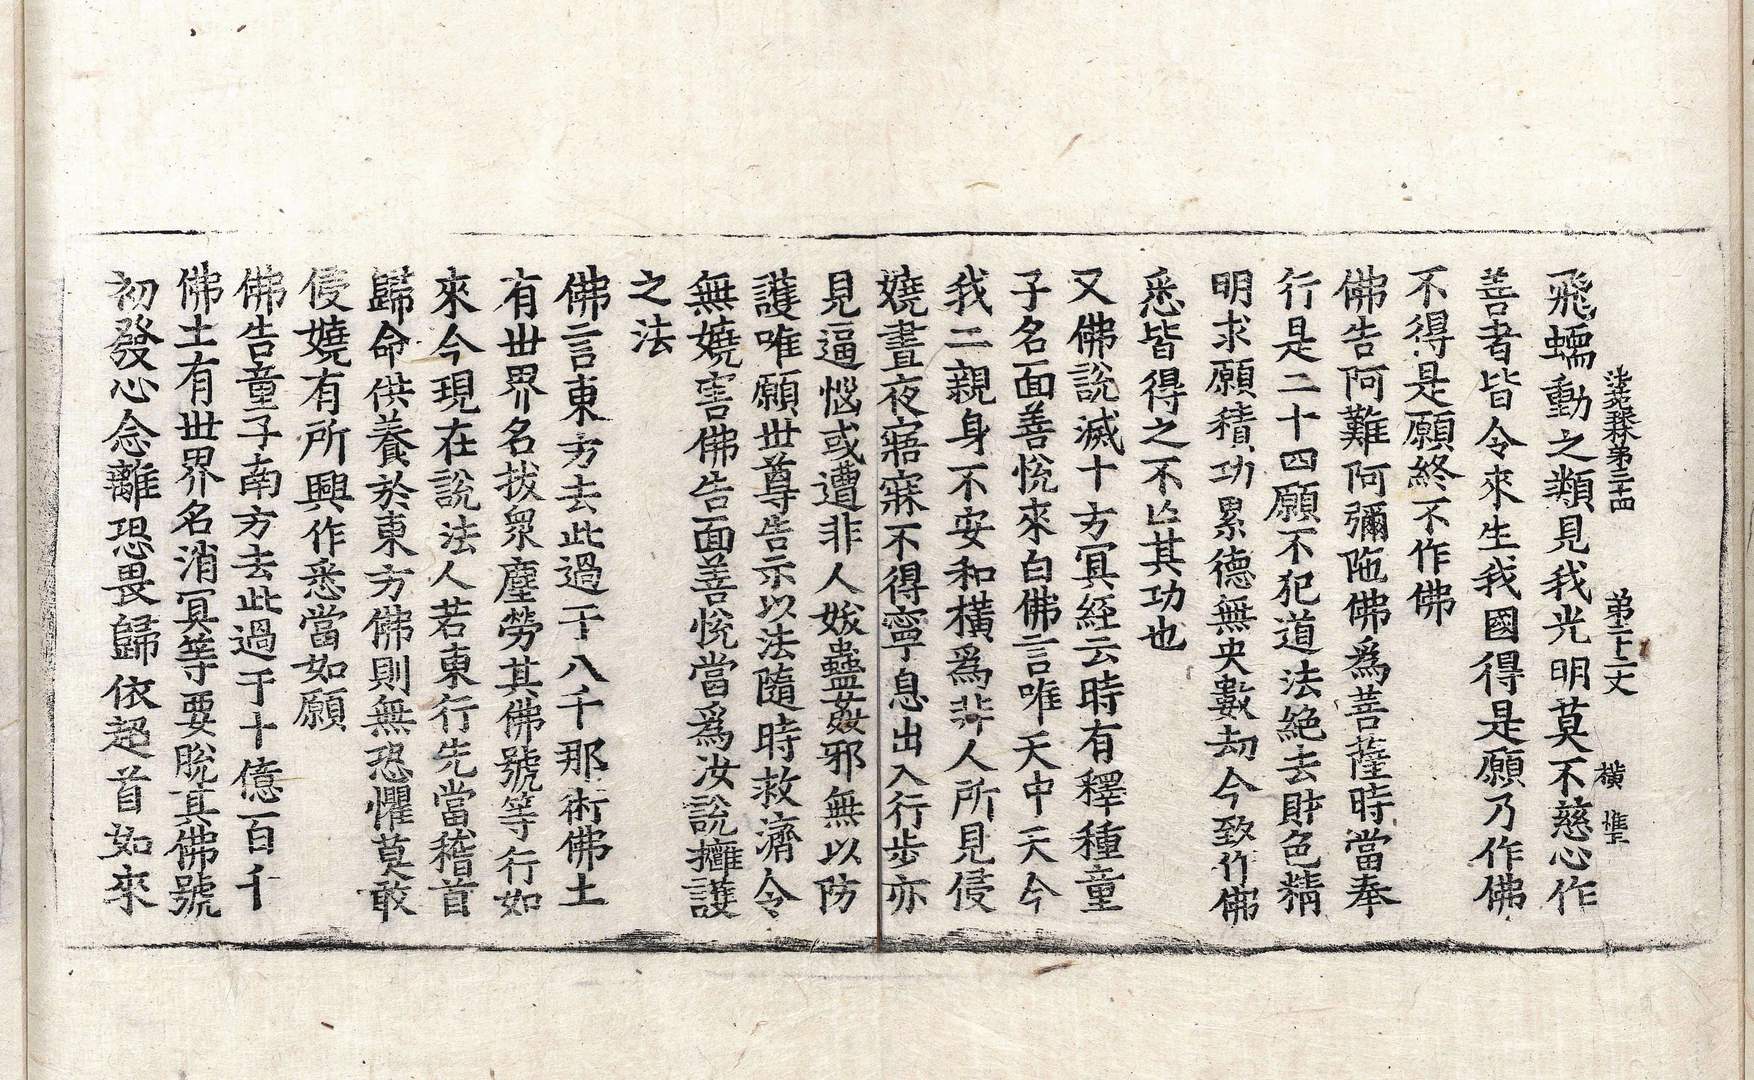 法苑珠林第二十四 第二十二丈 橫 惟
飛蠕動之類見我光明莫不慈心作
善者皆令來生我國得是願乃作佛
不得是願終不作佛
佛告阿難阿彌陁佛爲菩薩時當奉
行是二十四願不犯道法絶去財色精
明求願積功累德無央數劫今致作佛
悉皆得之不亾其功也
又佛說滅十方冥經云時有釋種童
子名面善恱來白佛言唯天中天今
我二親身不安和橫爲非人所見侵
嬈晝夜寤寐不得寧息出入行步亦
見逼惱或遭非人妭蠱姦邪無以防
護唯願世尊告示以法隨時救濟令
無嬈害佛告面善恱當爲汝說擁護
之法
佛言東方去此過于八千那術佛土
有世界名拔衆塵勞其佛號等行如
來今現在說法人若東行先當稽首
歸命供養於東方佛則無恐懼莫敢
侵嬈有所興作悉當如願
佛告童子南方去此過于十億百千
佛土有世界名消冥等要脫其佛號
初發心念離恐畏歸依超首如來